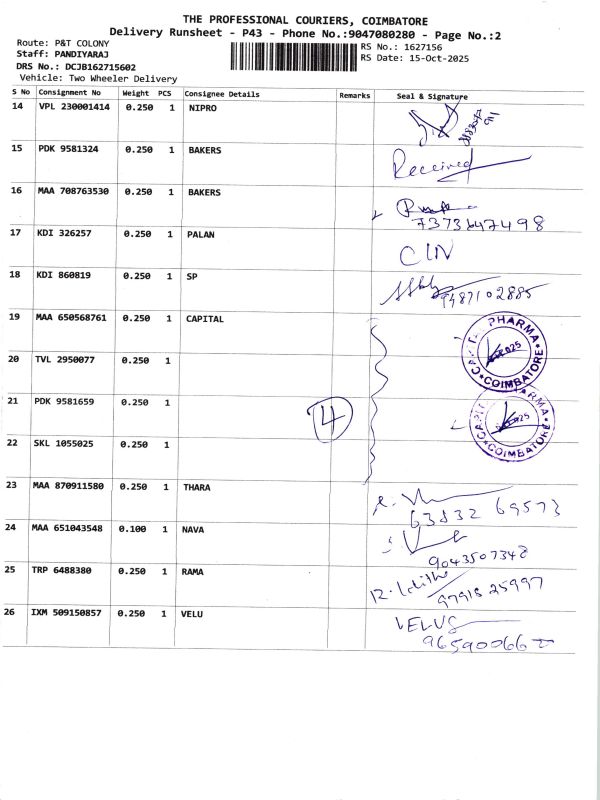 THE PROFESSIONAL COURIERS, COIMBATORE
Delivery Runsheet - P43 - Phone No.:9047080280 - Page No.:2
Route: P&T COLONY
Staff: PANDIYARAJ
DRS No.: DCJB162715602
Vehicle: Two Wheeler Delivery
RS No.: 1627156
RS Date: 15-Oct-2025
S No Consignment No Weight PCS Consignee Details Remarks Seal & Signature
14 VPL 230001414 0.250 1 NIPRO
15 PDK 9581324 0.250 1 BAKERS Received
16 MAA 708763530 0.250 1 BAKERS
7373647498
17 KDI 326257 0.250 1 PALAN CIN
18 KDI 860819 0.250 1 SP 9487102885
19 MAA 650568761 0.250 1 CAPITAL CAPITAL PHARMA COIMBATORE
20 TVL 2950077 0.250 1
21 PDK 9581659 0.250 1 4 CAPITAL PHARMA COIMBATORE
22 SKL 1055025 0.250 1
23 MAA 870911580 0.250 1 THARA
63832 69573
24 MAA 651043548 0.100 1 NAVA
9043507348
25 TRP 6488380 0.250 1 RAMA
97918 25997
26 IXM 509150857 0.250 1 VELU VELUS